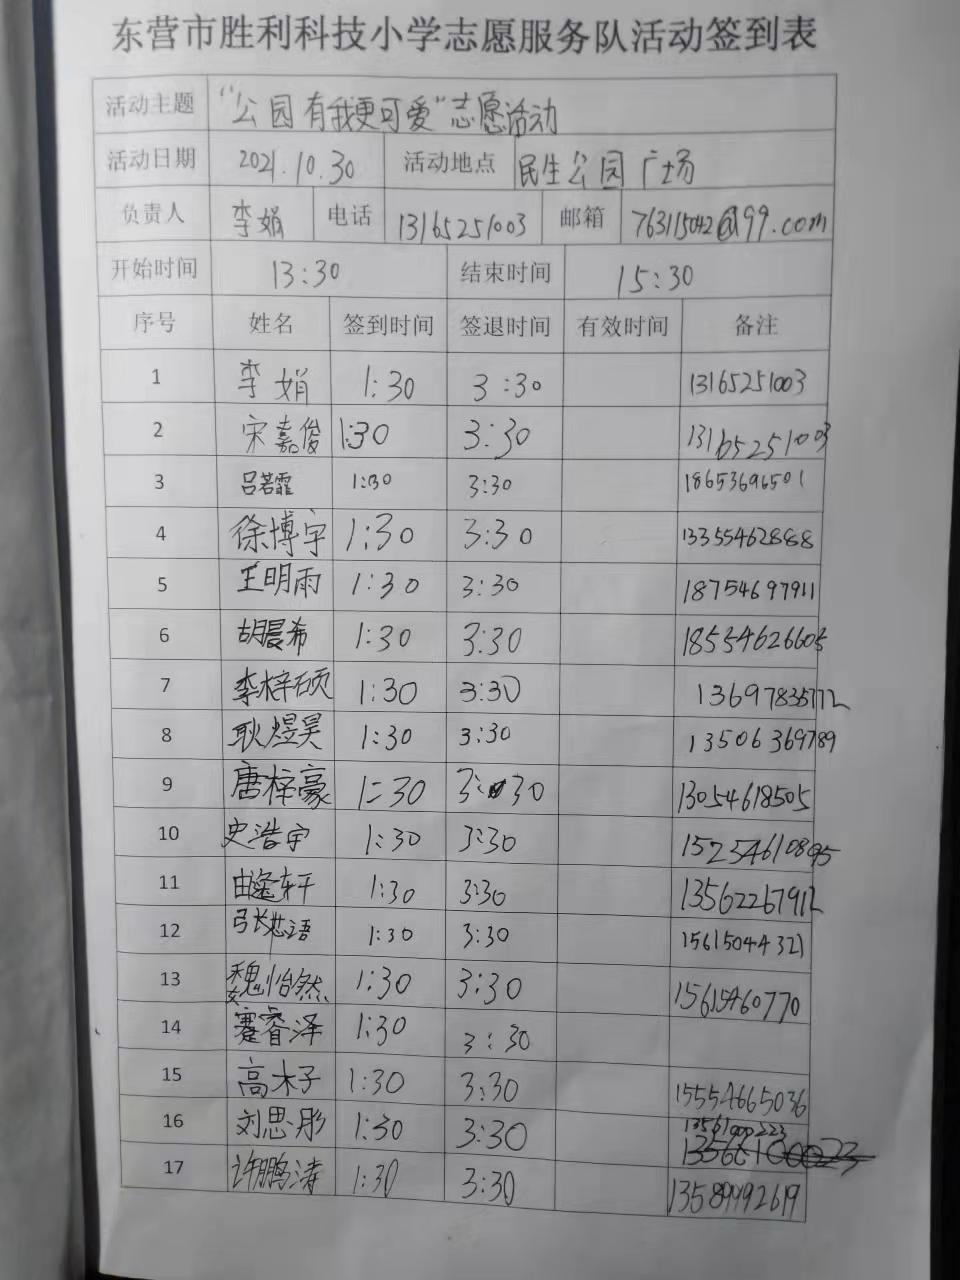 东营市胜利科技小学志愿服务队活动签到表
活动主题 “公园有我更可爱”志愿活动
活动日期 2021.10.30 活动地点 民生公园广场
负责人 李娟 电话 13165251003 邮箱 763115042@99.com
开始时间 13:30 结束时间 15:30
序号 姓名 签到时间 签退时间 有效时间 备注
1 李娟 1:30 3:30 13165251003
2 宋嘉俊 1:30 3:30 13165251003
3 吕若霏 1:30 3:30 18653696501
4 徐博宇 1:30 3:30 13355462888
5 王明雨 1:30 3:30 18754697911
6 胡晨希 1:30 3:30 18554626605
7 李梓硕 1:30 3:30 13697835772
8 耿煜昊 1:30 3:30 13506369789
9 唐梓豪 1:30 3:30 13054618505
10 史浩宇 1:30 3:30 15254610895
11 由逢轩 1:30 3:30 13562267912
12 张芯语 1:30 3:30 15615044321
13 魏怡然 1:30 3:30 15615460770
14 蹇睿泽 1:30 3:30
15 高木子 1:30 3:30 15554665036
16 刘思彤 1:30 3:30 13561000223
17 许鹏涛 1:30 3:30 13589992619